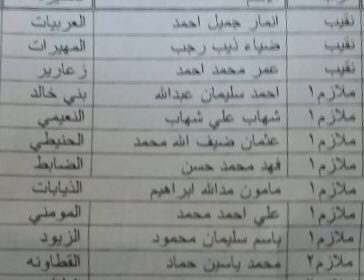 نقيب انمار جميل احمد العربيات
نقيب ضياء ذيب رجب المهيرات
نقيب عمر محمد احمد زعارير
ملازم ١ احمد سليمان عبدالله بني خالد
ملازم ١ شهاب علي شهاب النعيمي
ملازم ١ عثمان ضيف الله محمد الحنيطي
ملازم ١ فهد محمد حسن الضابط
ملازم ١ مامون مدالله ابراهيم الذيابات
ملازم ١ علي احمد محمد المومني
ملازم ١ باسم سليمان محمود الزيود
ملازم ٢ محمد ياسين حماد القطاونه